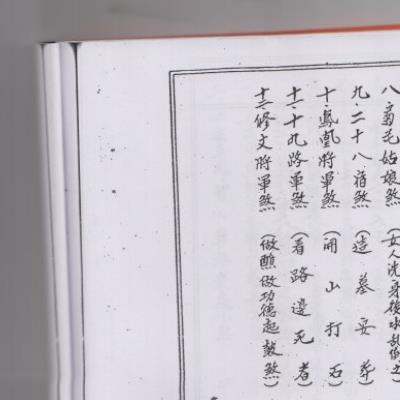 八.菊花姑娘煞(女人洗身後水乱倒
九.二十八宿煞(造墓安葬)
十.鳳凰將軍煞(開山打石)
十一.十九路軍煞(看路邊死者)
十二.修文將軍煞(做醮做功德起鼓煞)